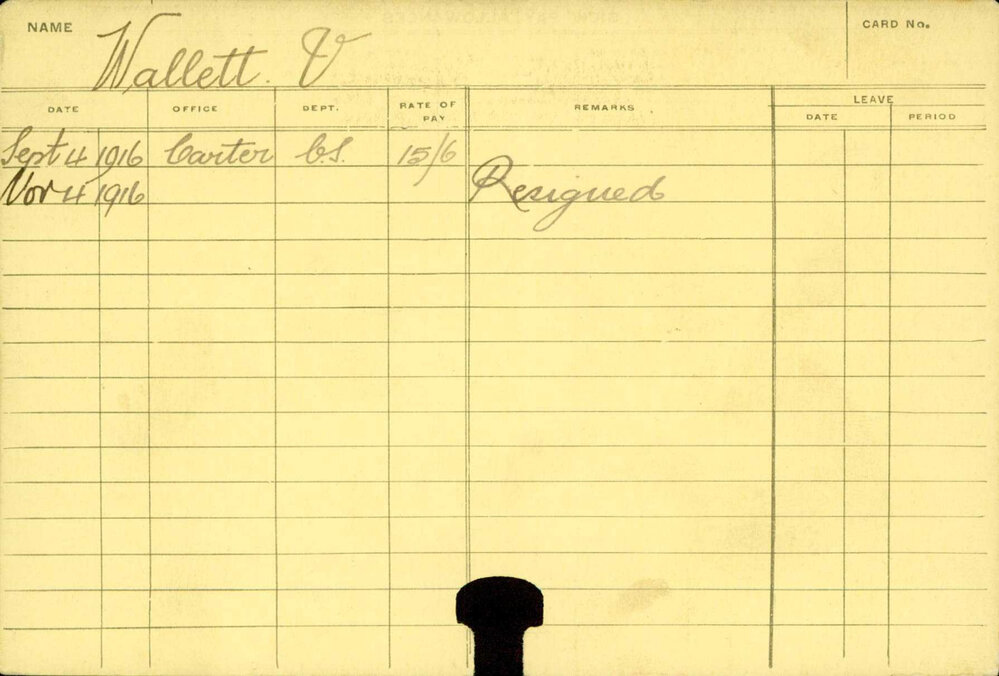 NAME Wallett. V CARD No.
DATE OFFICE DEPT. RATE OF PAY REMARKS LEAVE
DATE PERIOD
Sept 4 1916 Carter C.S. 15/6
Nov 4 1916 Resigned